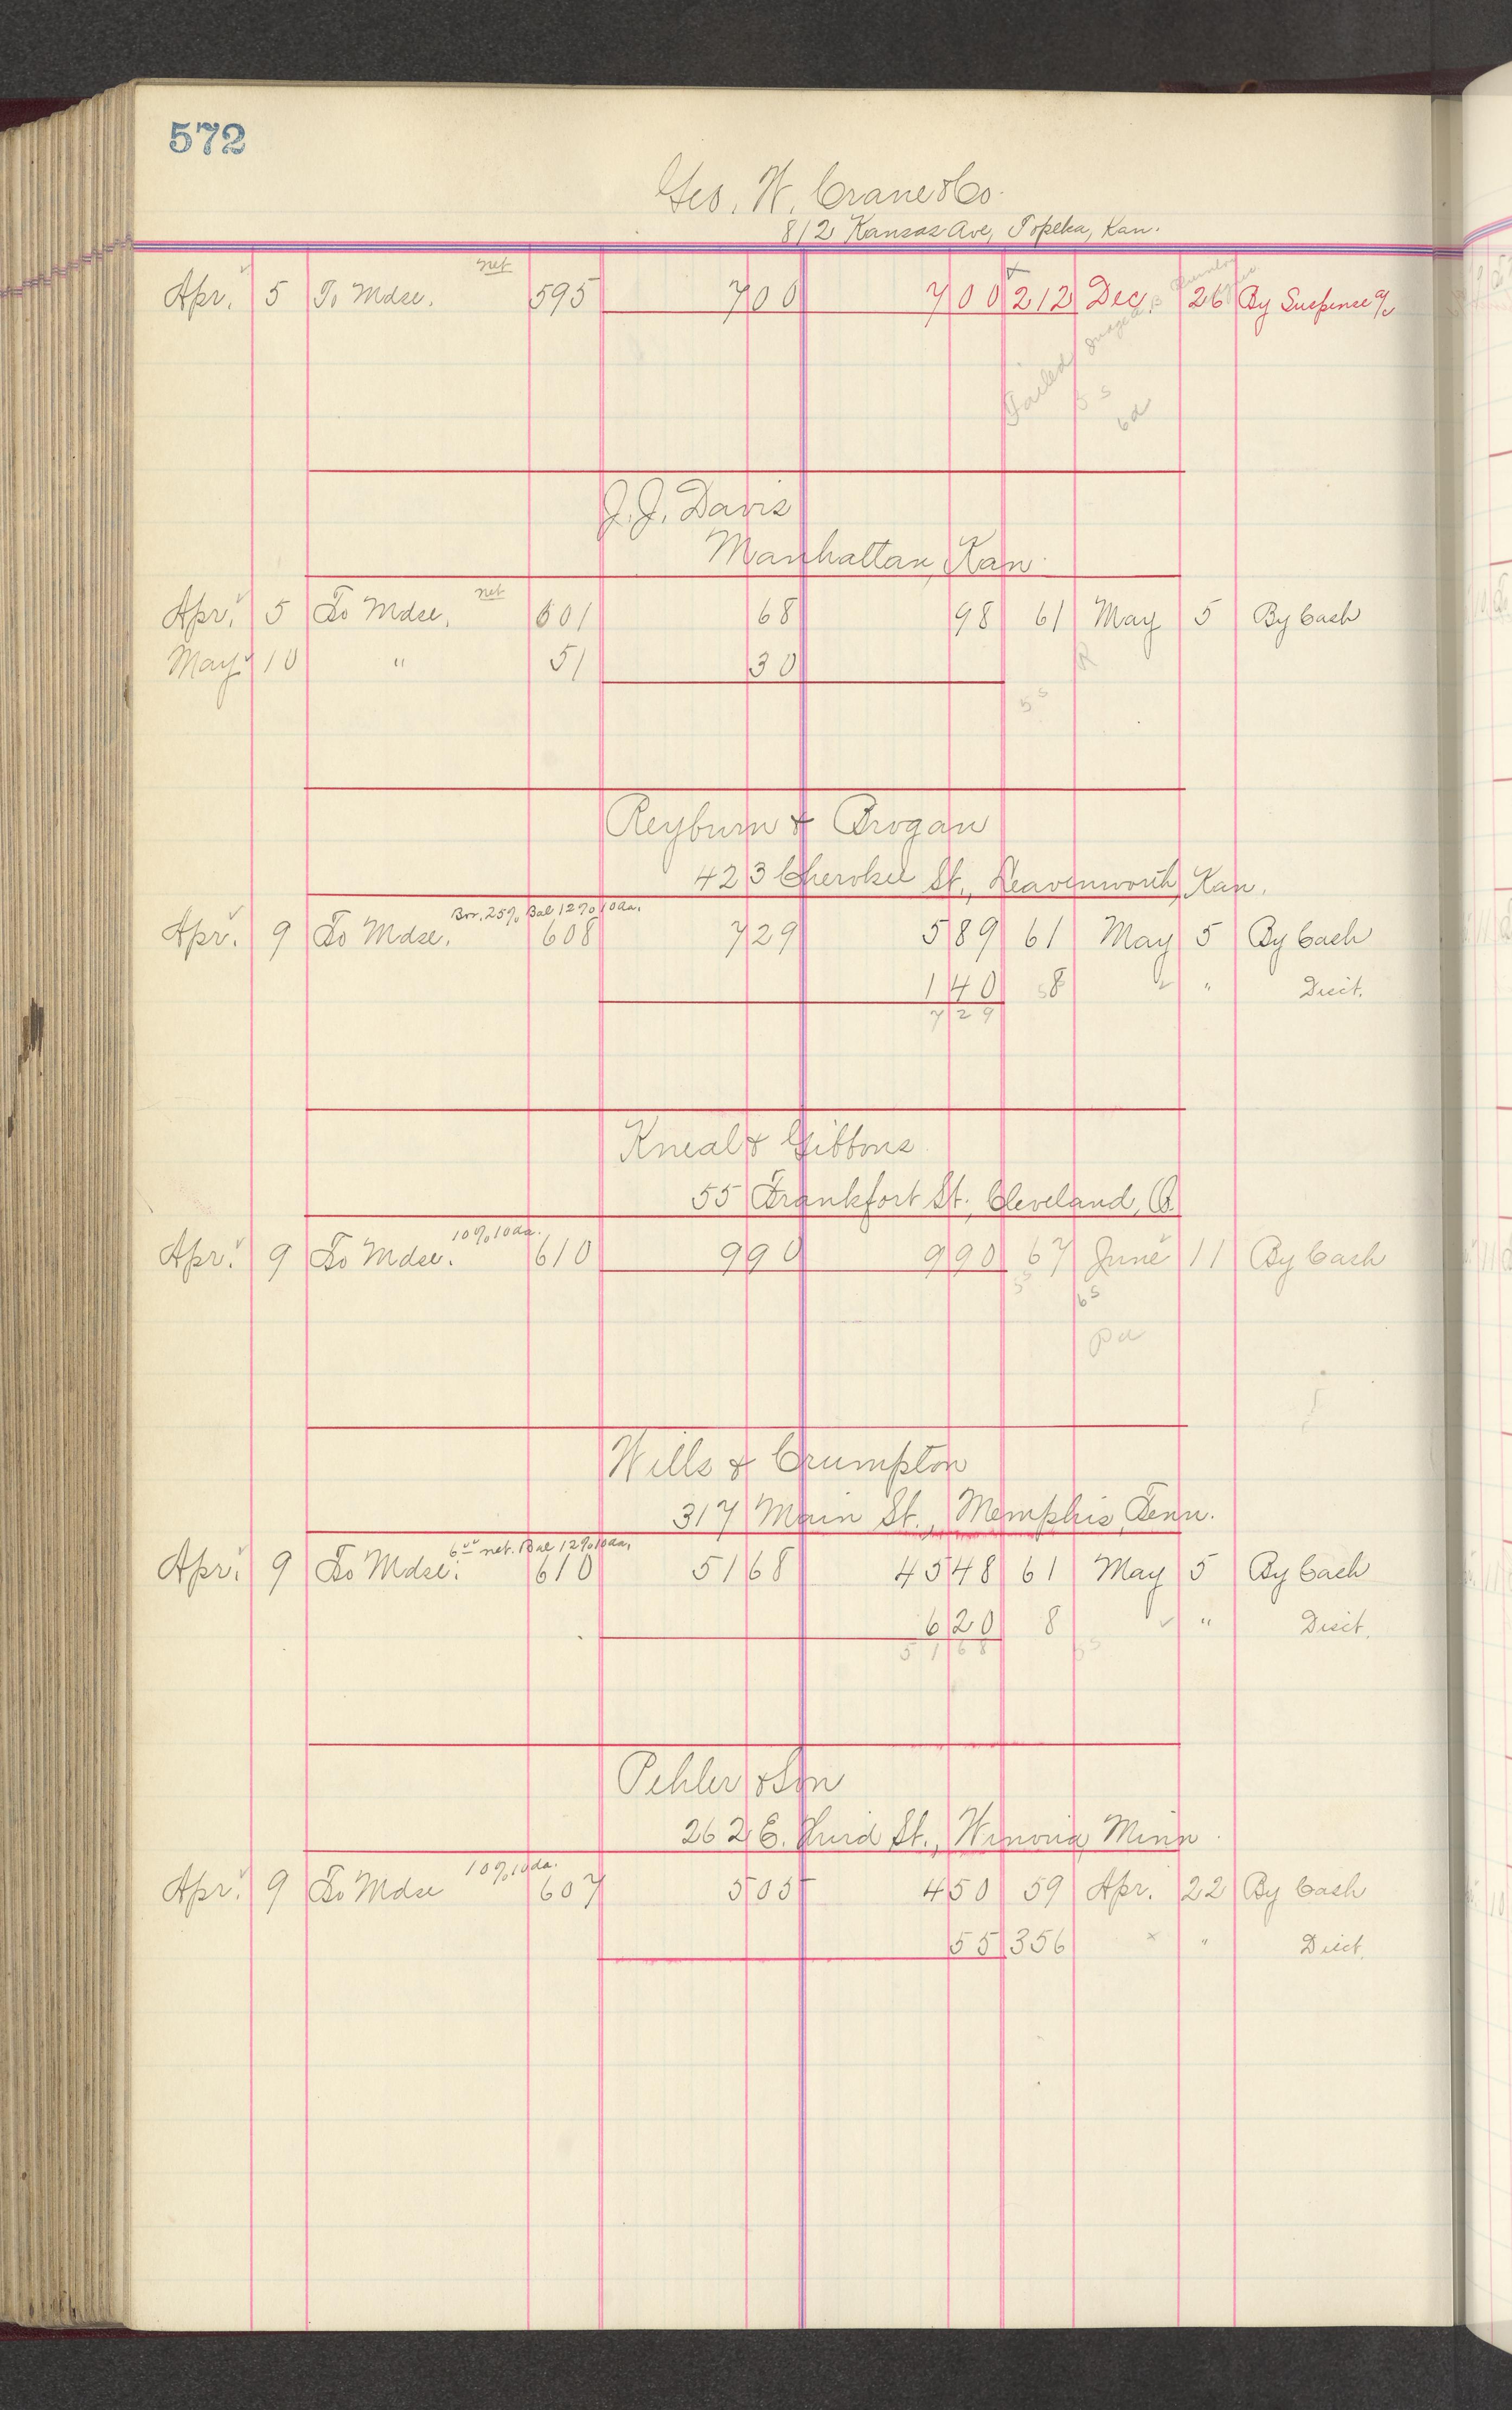 572
Geo. W. Crane & Co.
812 Kansas Ave, Topeka, Kan.
net
Apr. 5 To Mdse. 595 7 00 7 00 212 Dec. 26 By Suspense a/c
Failed
6d
J. J. Davis
Manhattan, Kan.
net
Apr. 5 To Mdse. 601 68 98 61 May 5 By Cash
May 10 " 51 30
R
5s
Reyburn & Brogan
423 Cherokee St., Leavenworth, Kan.
Bor. 25% Bal 12% 10 da.
Apr. 9 To Mdse. 608 7 29 5 89 61 May 5 By Cash
1 40 8 " Disct.
7 29
Kneal & Gibbons
55 Frankfort St. Cleveland, O.
10% 10 da.
Apr. 9 To Mdse. 610 9 90 9 90 67 June 11 By Cash
5s
6s
Pd
Wills & Crumpton
317 Main St., Memphis, Tenn.
6 00 net. Bal 12% 10 da.
Apr. 9 To Mdse. 610 51 68 45 48 61 May 5 By Cash
6 20 8 " Disct.
51 68 5s
Pehler & Son
262 E. Third St., Winona, Minn.
10% 10 da.
Apr. 9 To Mdse 607 5 05 4 50 59 Apr. 22 By Cash
55 356 " Disct.